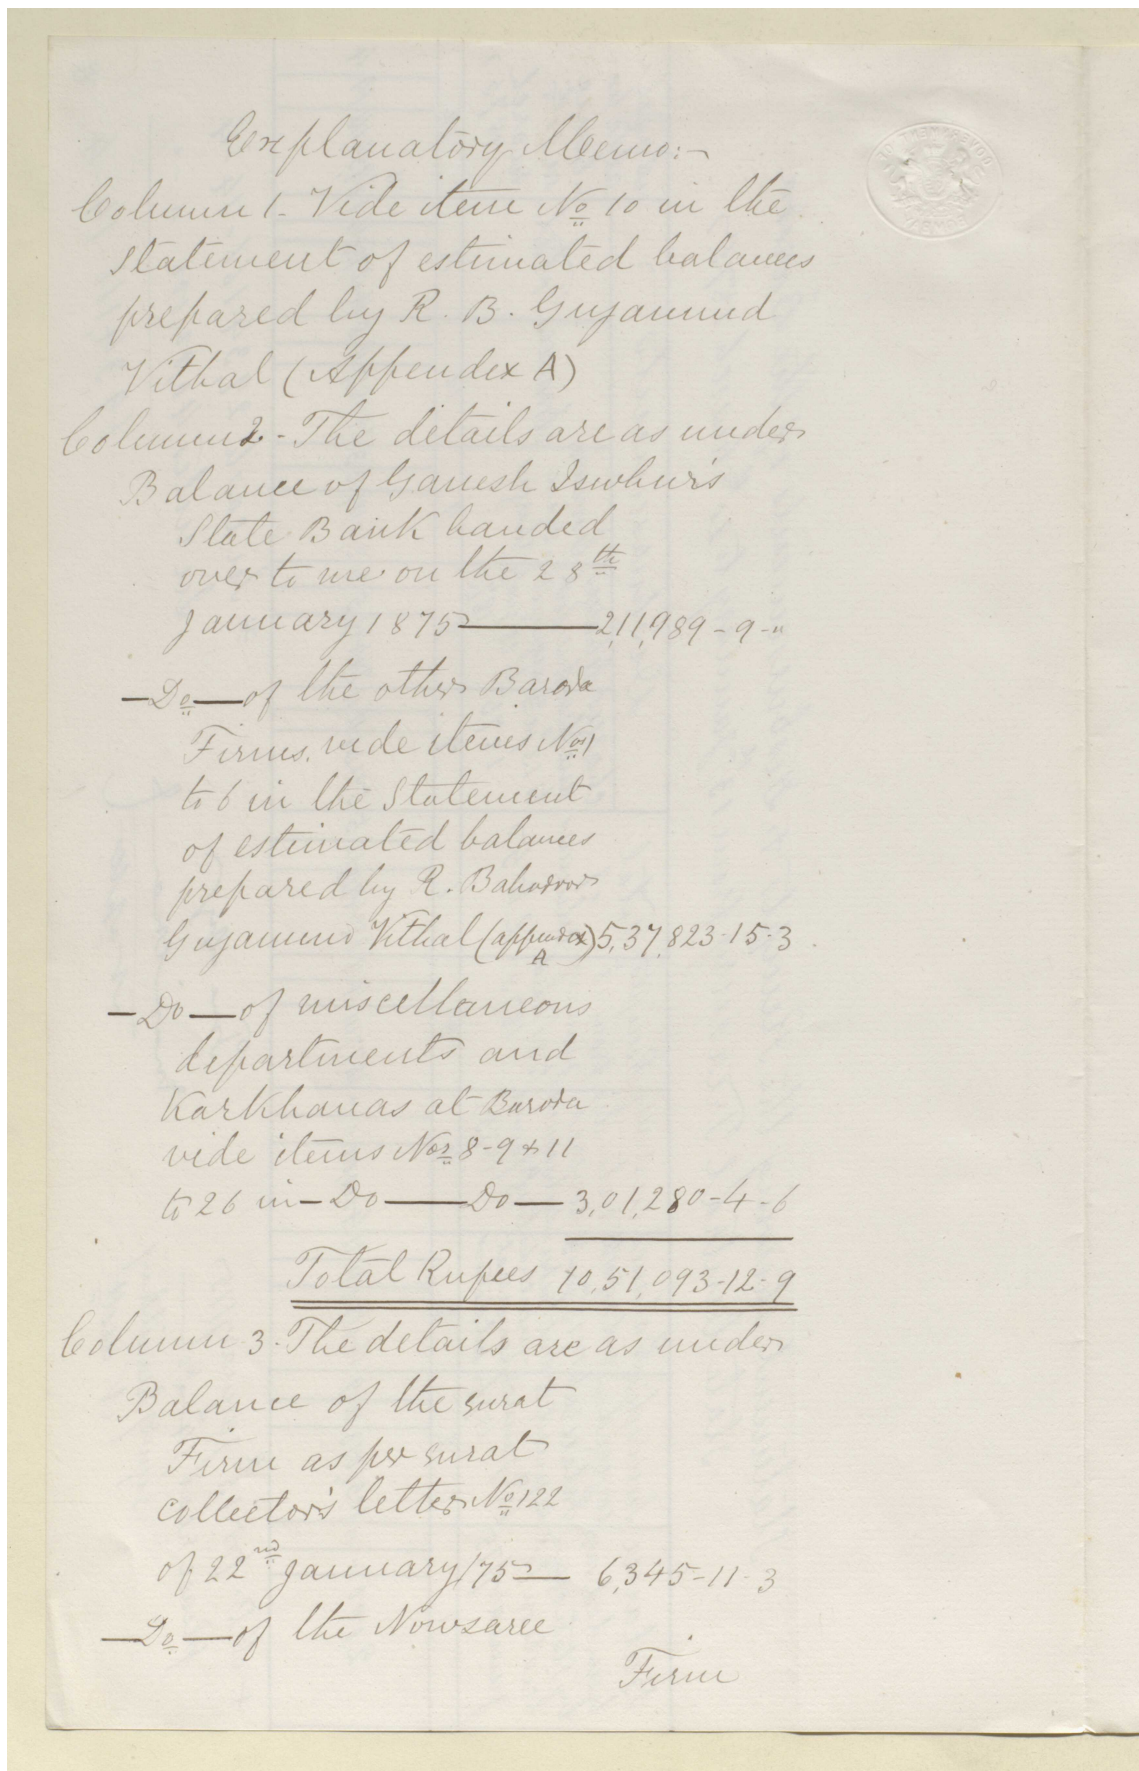 Explanatory Memo:-
Column 1 - Vide item No 10 in the
Statement of estimated balances
prepared by R. B. Gujanund
Vithal (Appendix A)
Column 2 - The details are as under
Balance of Ganesh Iswhur's
State Bank handed
over to me on the 28th
January 1875 — 2,11,989 - 9 - "
— Do — of the other Baroda
Firms, vide items Nos 1
to 6 in the Statement
of estimated balances
prepared by R. Bahadoor
Gujanund Vithal (appendix A) 5,37,823-15-3
— Do — of miscellaneous
departments and
Karkhanas at Baroda
vide items Nos 8-9 & 11
to 26 in — Do — Do — 3,01,280-4-6
Total Rupees 10,51,093-12-9
Column 3 - The details are as under
Balance of the Surat
Firm as per Surat
Collector's letter No 122
of 22nd January/75 — 6,345-11-3
— Do — of the Nowsaree
Firm